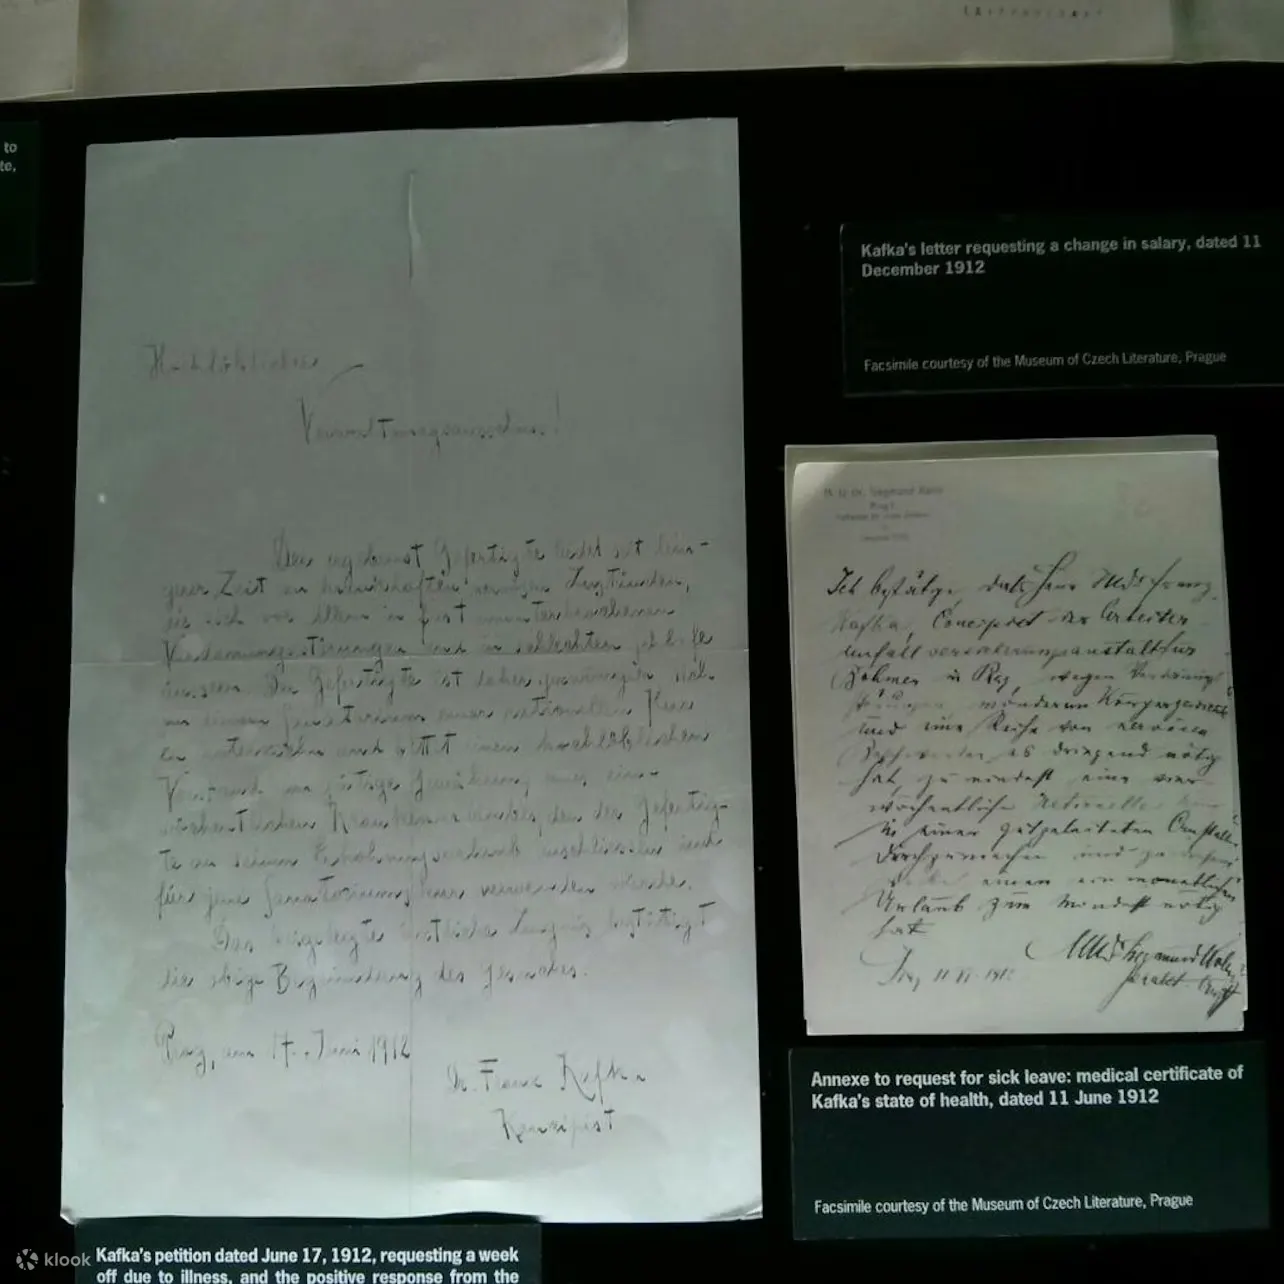 to
te,
Kafka's letter requesting a change in salary, dated 11
December 1912
Facsimile courtesy of the Museum of Czech Literature, Prague
Hochlöblicher
Der ergebenst Gefertigte leidet seit län-
gerer Zeit an krankhaften nervösen Zuständen,
die sich vor allem in fast ununterbrochenen
Verdauungsstörungen und in schlechtem Schlafe
äussern. Der Gefertigte ist daher gezwungen, sich
in einem Sanatorium einer rationellen Kur
zu unterziehn und bittet einen hochlöblichen
Vorstand um gütige Gewährung eines ein-
wöchentlichen Krankenurlaubes, den der Gefertig-
te an seinen Erholungsurlaub anschliessen und
für jene Sanatoriumskur verwenden würde.
Das beigelegte ärztliche Zeugnis bestätigt
die obige Begründung des Gesuches.
Prag, am 17. Juni 1912
Dr. Franz Kafka
Konzipist
Ich bestätige, dass Herr Franz
Kafka, Concipist der Arbeiter
unfallversicherungsanstalt für
Böhmen in Prag, wegen
und eine Reihe von nervösen
es dringend nötig
hat, zu mindest eine vier
wöchentliche rationelle
in einer gutgeleiteten Anstalt
und zu
einen ein monatlichen
Urlaub zum Mindest nötig
hat
Prag 11 VI 1912
Annexe to request for sick leave: medical certificate of
Kafka's state of health, dated 11 June 1912
Facsimile courtesy of the Museum of Czech Literature, Prague
Kafka's petition dated June 17, 1912, requesting a week
off due to illness, and the positive response from the
klook